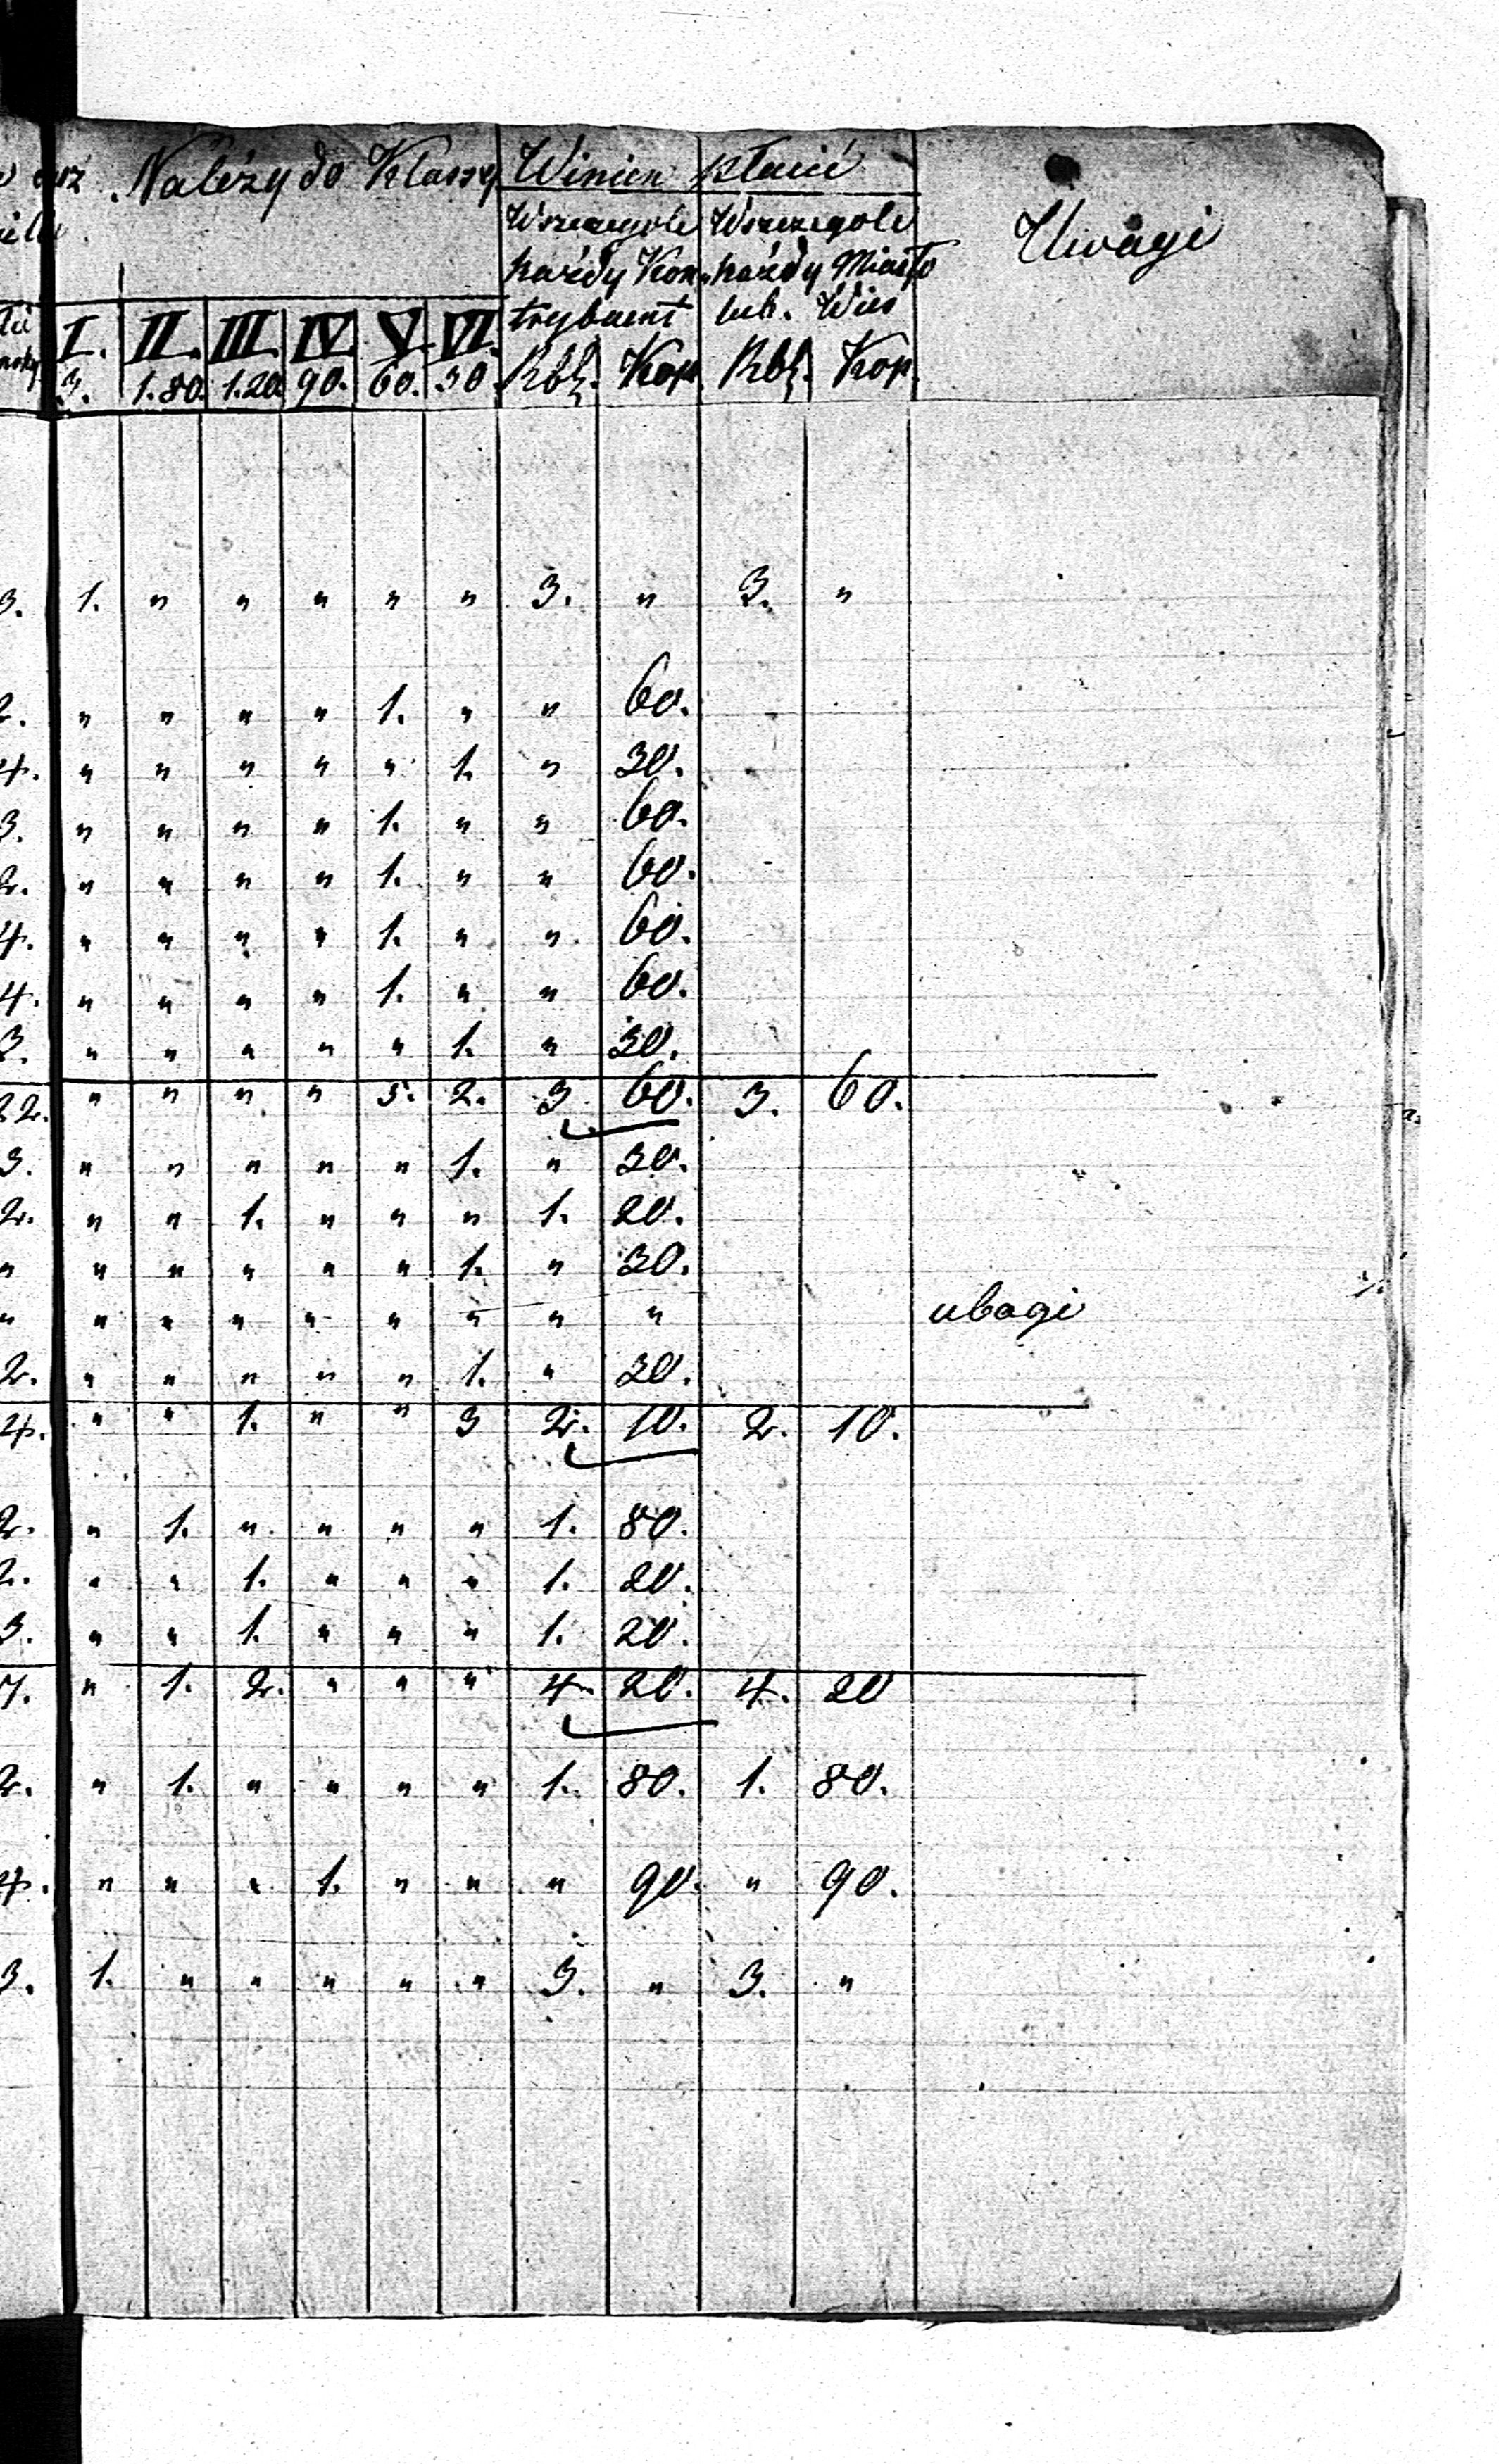 Należy do Klassy Winien płacić Uwagi
Wszczegole Wszczegole
każdy Kon- każdy Miasto
trybuent lub. Wieś
I. II. III. IV. V. VI. Rbl. Kop. Rbl. Kop.
3. 1.80. 1.20. 90. 60. 30.
3. 1. " " " " " 3. " 3. "
2. " " " " 1. " " 60.
4. " " " " " 1. " 30.
3. " " " " 1. " " 60.
2. " " " " 1. " " 60.
4. " " " " 1. " " 60.
4. " " " " 1. " " 60.
3. " " " " " 1. " 30.
22. " " " " 5. 2. 3 60. 3. 60.
3. " " " " " 1. " 30.
2. " " 1. " " " 1. 20.
" " " " " " 1. " 30.
" " " " " " " " " ubogi
2. " " " " " 1. " 30.
4. " " 1. " " 3 2. 10. 2. 10.
2. " 1. " " " " 1. 80.
2. " " 1. " " " 1. 20.
3. " " 1. " " " 1. 20.
7. " 1. 2. " " " 4. 20. 4. 20
2. " 1. " " " " 1. 80. 1. 80.
4. " " " 1. " " " 90. " 90.
3. 1. " " " " " 3. " 3. "